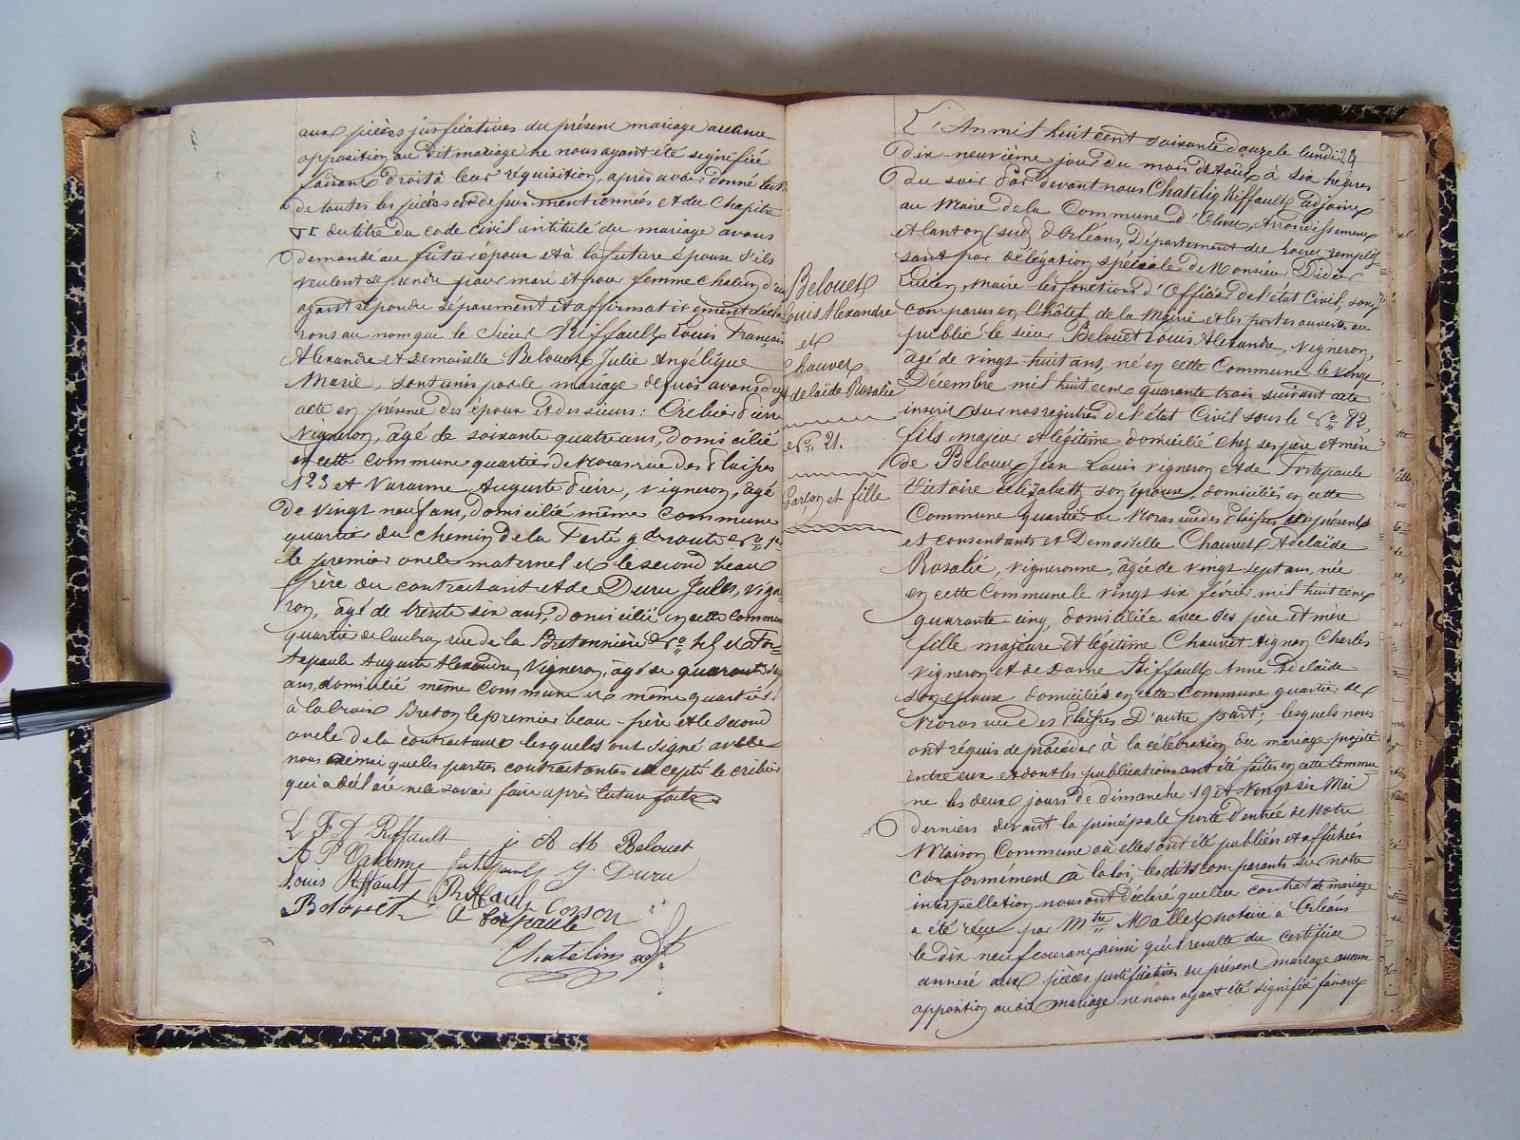 aux pièces justificatives du présent mariage aucune
opposition au dit mariage ne nous ayant été signifiée
faisant droit à leur réquisition, après avoir donné lecture
de toutes les pièces ci-dessus mentionnées et du Chapitre
VI du titre du code civil intitulé du mariage avons
demandé au futur époux et à la future épouse s'ils
veulent se prendre pour mari et pour femme chacun d'eux
ayant répondu séparément et affirmativement décla
rons au nom que le Sieur Riffault Louis François
Alexandre et Demoiselle Belouet Julie Angélique
Marie, sont unis par le mariage de quoi avons dressé
acte en présence des époux et des sieurs : Crebier Pierre
Vigneron, âgé de soixante quatre ans, domicilié
en cette commune quartier de Noras rue des
123 et Varanne Auguste Pierre, vigneron, âgé
de vingt neuf ans, domicilié même commune
quartier du chemin de la Ferté gde route No
le premier oncle maternel et le second beau
frère du contractant et de Duru Jules, vigne
ron, âgé de trente six ans, domicilié en cette commune
quartier de rue de la Bretonnière No et For
tepaule Auguste Alexandre, Vigneron, âgé de quarante
ans, domicilié même commune et même quartier
à la Croix Breton le premier beau-frère et le second
oncle de la contractante lesquels ont signé avec
nous ainsi que les parties contractantes excepté le crebier
qui a déclaré ne le savoir faire après lecture faite
L F A Riffault j A M Belouet
A P Varanne fortepaule J. Duru
Louis Riffault Riffault Cosson
Belouet A fortepaule
Chatelin adjt
Belouet
Louis Alexandre
et
Chauvet
Adelaïde Rosalie
No 21.
Garçon et fille
L'An mil huit cent soixante douze le lundi
dix-neuvième jour du mois d'Août à six heures
du soir Par devant nous Chatelin Riffault, adjoint
au Maire de la Commune d'Olivet, Arrondissement
et canton (sud) d'Orléans, Département du Loiret, remplis
sant par délégation spéciale de Monsieur Didier
Lucien, Maire les fonctions d'Officier de l'état Civil, sont
comparus en l'hôtel de la Mairie et les portes ouvertes au
public le sieur Belouet Louis Alexandre, vigneron,
âgé de vingt huit ans, né en cette Commune le onze
Décembre mil huit cent quarante trois suivant acte
inscrit sur nos registres de l'état Civil sous le No 82,
fils majeur et légitime domicilié chez ses père et mère
de Belouet Jean Louis vigneron et de Fortepaule
Victoire Elizabeth son épouse, domiciliés en cette
Commune quartier de Noras rue des ici présents
et consentants et Demoiselle Chauvet Adelaïde
Rosalie, vigneronne, âgée de vingt sept ans, née
en cette Commune le vingt six février mil huit cent
quarante cinq, domiciliée avec ses père et mère
fille majeure et légitime Chauvet Aignan Charles
vigneron et de Dame Riffault Anne Adelaïde
son épouse domiciliés en cette Commune quartier de
Noras rue des D'autre part ; lesquels nous
ont réquis de procéder à la célébration du mariage projeté
entre eux et dont les publications ont été faites en cette Commu
ne les deux jours de dimanche 19 et Vingt six Mai
derniers devant la principale porte d'entrée de Notre
Maison Commune où elles ont été publiées et affichées
Conformément à la loi ; les dits comparants sur notre
interpellation nous ont déclaré que leur contrat de mariage
a été reçu par Mtre Mallet notaire à Orléans
le dix neuf courant ainsi qu'il resulte du certificat
annexé aux pièces justificatives du présent mariage aucune
opposition au dit mariage ne nous ayant été signifié faisant